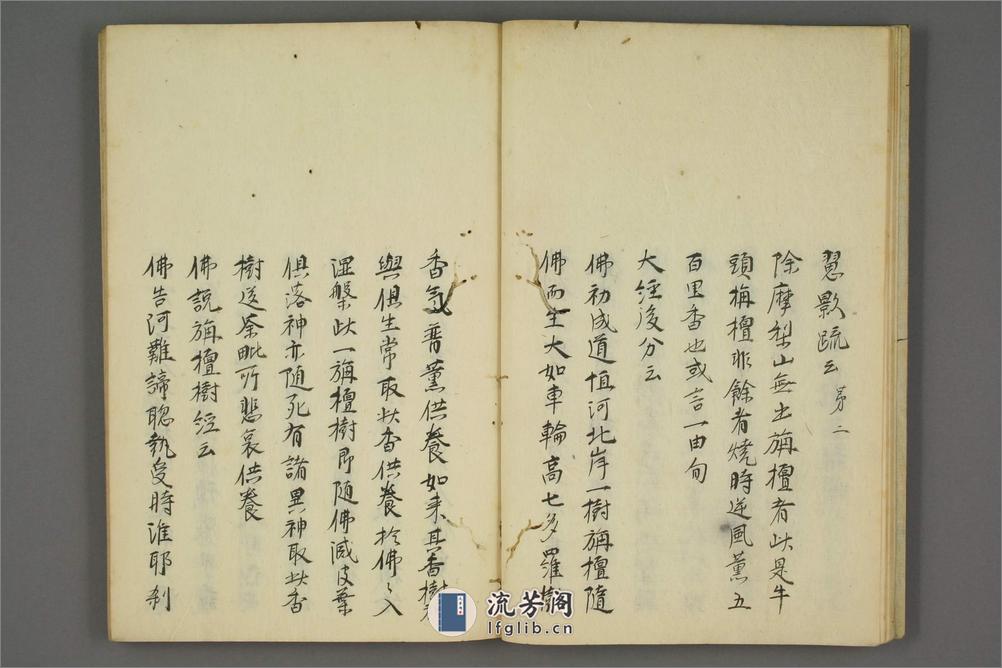 慧影疏云 第二
除摩梨山無出旃檀者此是牛
頭栴檀非餘者燒時逆風薰五
百里香也或言一由旬
大經後分云
佛初成道恒河北岸一樹旃檀隨
佛而生大如車輪高七多羅樹
香気普薫供養如来其香樹
與俱生常取此香供養於佛〻入
涅槃此一旃檀樹即随佛滅皮葉
俱落神亦随死有諸異神取此香
樹送荼毗所悲哀供養
佛說旃檀樹經云
佛告阿難諦聴執受時淮耶利
流芳閣
lfglib.cn